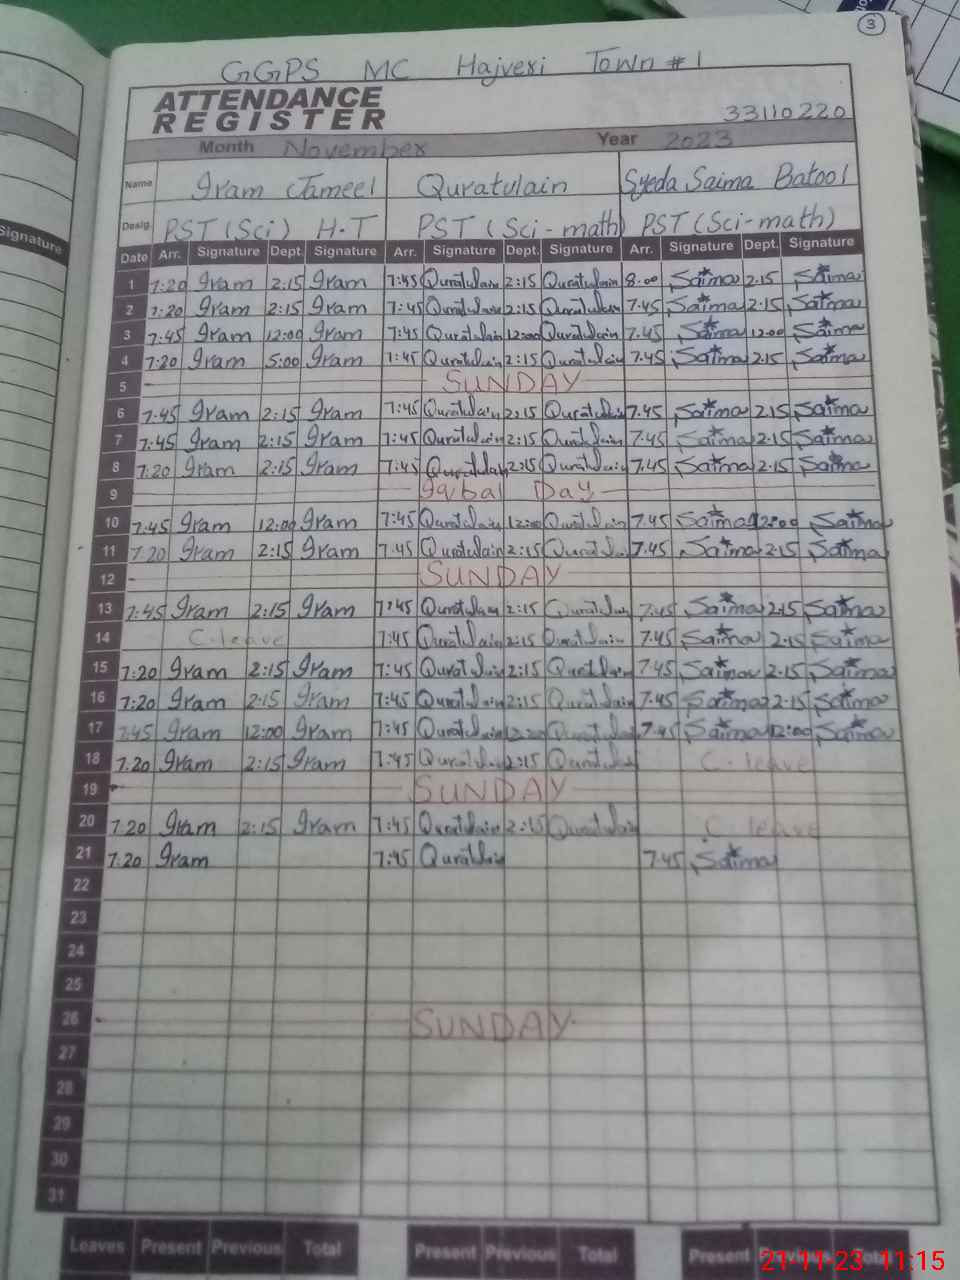 3
GGPS MC Hajveri Town #1
ATTENDANCE
REGISTER
33110220
Month November Year 2023
Name Iram Jameel Quratulain Syeda Saima Batool
Desig. PST (Sci) H.T PST (Sci-math) PST (Sci-math)
Signature
Date Arr. Signature Dept. Signature Arr. Signature Dept. Signature Arr. Signature Dept. Signature
1 7:20 Iram 2:15 Iram 7:45 Quratulain 2:15 Quratulain 8:00 Saima 2:15 Saima
2 7:20 Iram 2:15 Iram 7:45 Quratulain 2:15 Quratulain 7.45 Saima 2.15 Saima
3 7:45 Iram 12:00 Iram 7:45 Quratulain 12:00 Quratulain 7.45 Saima 12:00 Saima
4 7:20 Iram 5:00 Iram 7:45 Quratulain 2:15 Quratulain 7.45 Saima 2.15 Saima
5 SUNDAY
6 7.45 Iram 2:15 Iram 7:45 Quratulain 2:15 Quratulain 7.45 Saima 2.15 Saima
7 7:45 Iram 2:15 Iram 7:45 Quratulain 2:15 Quratulain 7.45 Saima 2.15 Saima
8 7:20 Iram 2:15 Iram 7:45 Quratulain 2:15 Quratulain 7.45 Saima 2.15 Saima
9 Iqbal Day
10 7:45 Iram 12:00 Iram 7:45 Quratulain 12:00 Quratulain 7.45 Saima 12:00 Saima
11 7:20 Iram 2:15 Iram 7:45 Quratulain 2:15 Quratulain 7.45 Saima 2:15 Saima
12 SUNDAY
13 7:45 Iram 2:15 Iram 7:45 Quratulain 2:15 Quratulain 7:45 Saima 2:15 Saima
14 C.leave 7:45 Quratulain 2:15 Quratulain 7.45 Saima 2.15 Saima
15 7:20 Iram 2:15 Iram 7:45 Quratulain 2:15 Quratulain 7.45 Saima 2.15 Saima
16 7:20 Iram 2:15 Iram 7:45 Quratulain 2:15 Quratulain 7.45 Saima 2.15 Saima
17 7:45 Iram 12:00 Iram 7:45 Quratulain Quratulain 7.45 Saima 12:00 Saima
18 7.20 Iram 2:15 Iram 7:45 Quratulain 2:15 Quratulain C.leave
19 SUNDAY
20 7.20 Iram 2:15 Iram 7:45 Quratulain 2:15 Quratulain C.leave
21 7:20 Iram 7:45 Quratulain 7.45 Saima
22
23
24
25
26 SUNDAY
27
28
29
30
31
Leaves Present Previous Total Present Previous Total Present Previous Total
21-11-23 11:15